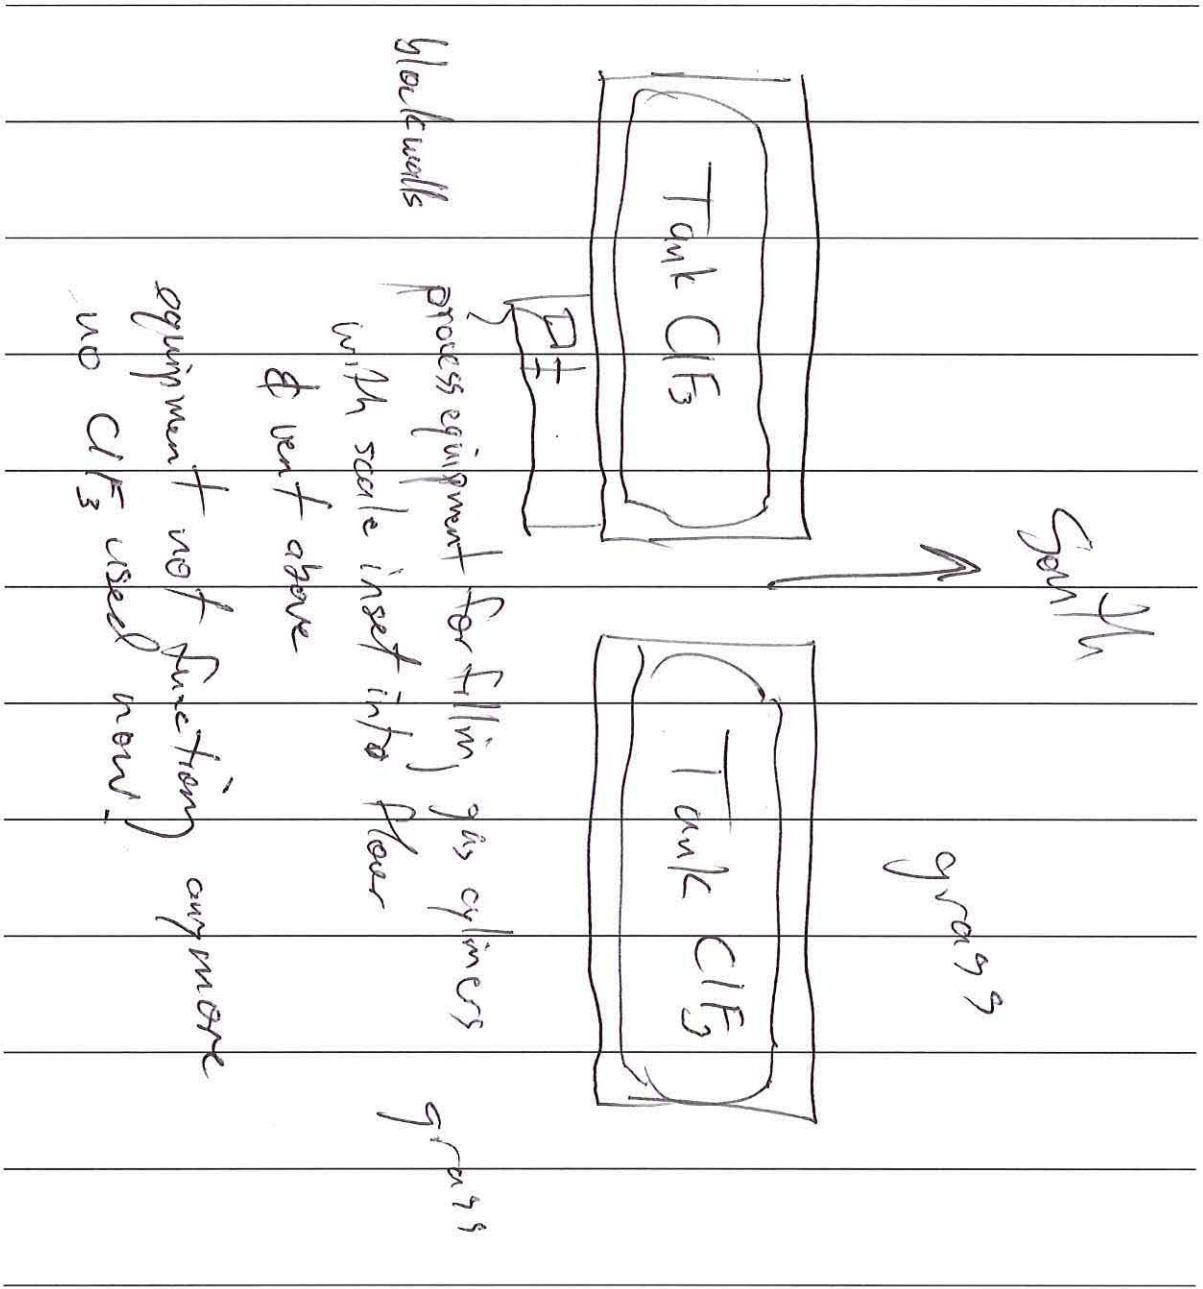 South
grass
Tank ClF₃
Tank ClF₃
blockwalls
process equipment for filling gas cyliners
grass
with scale inset into floor
& vent above
equipment not functioning anymore
no ClF₃ used now!